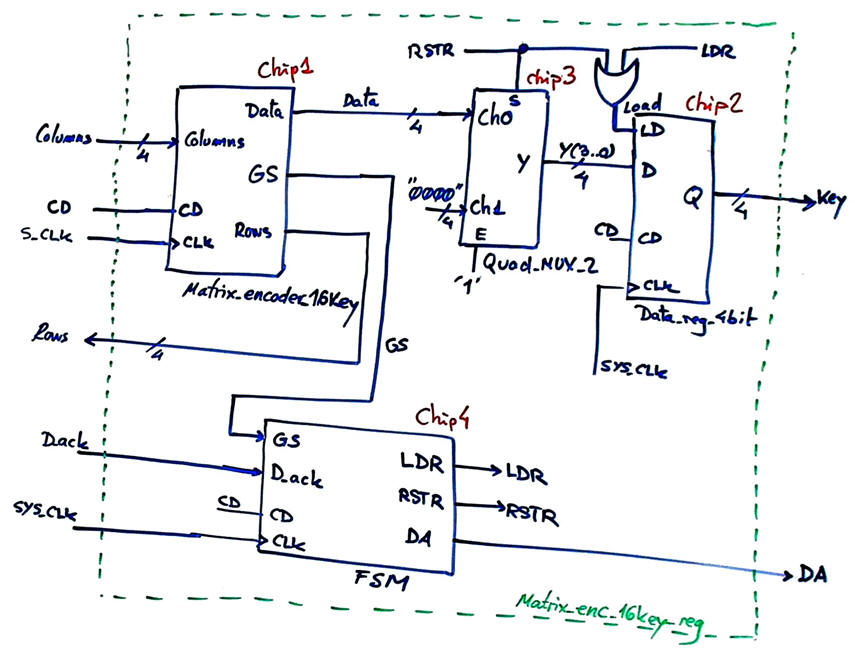 RSTR
LDR
Chip1
chip3
Load
Chip2
S
Data
Data
4
Ch0
LD
Columns
4
Columns
GS
Y
Y(3..0)
4
D
Q
4
Key
"0000"
4
Ch1
CD
CD
Rows
CD
CD
S_CLK
CLK
E
"1"
Quad_MUX_2
CLK
Matrix_encoder_16Key
Data_reg_4bit
Rows
4
GS
SYS_CLK
Chip4
D_ack
GS
LDR
LDR
D_ack
RSTR
RSTR
SYS_CLK
CD
CD
DA
CLK
DA
FSM
Matrix_enc_16key_reg